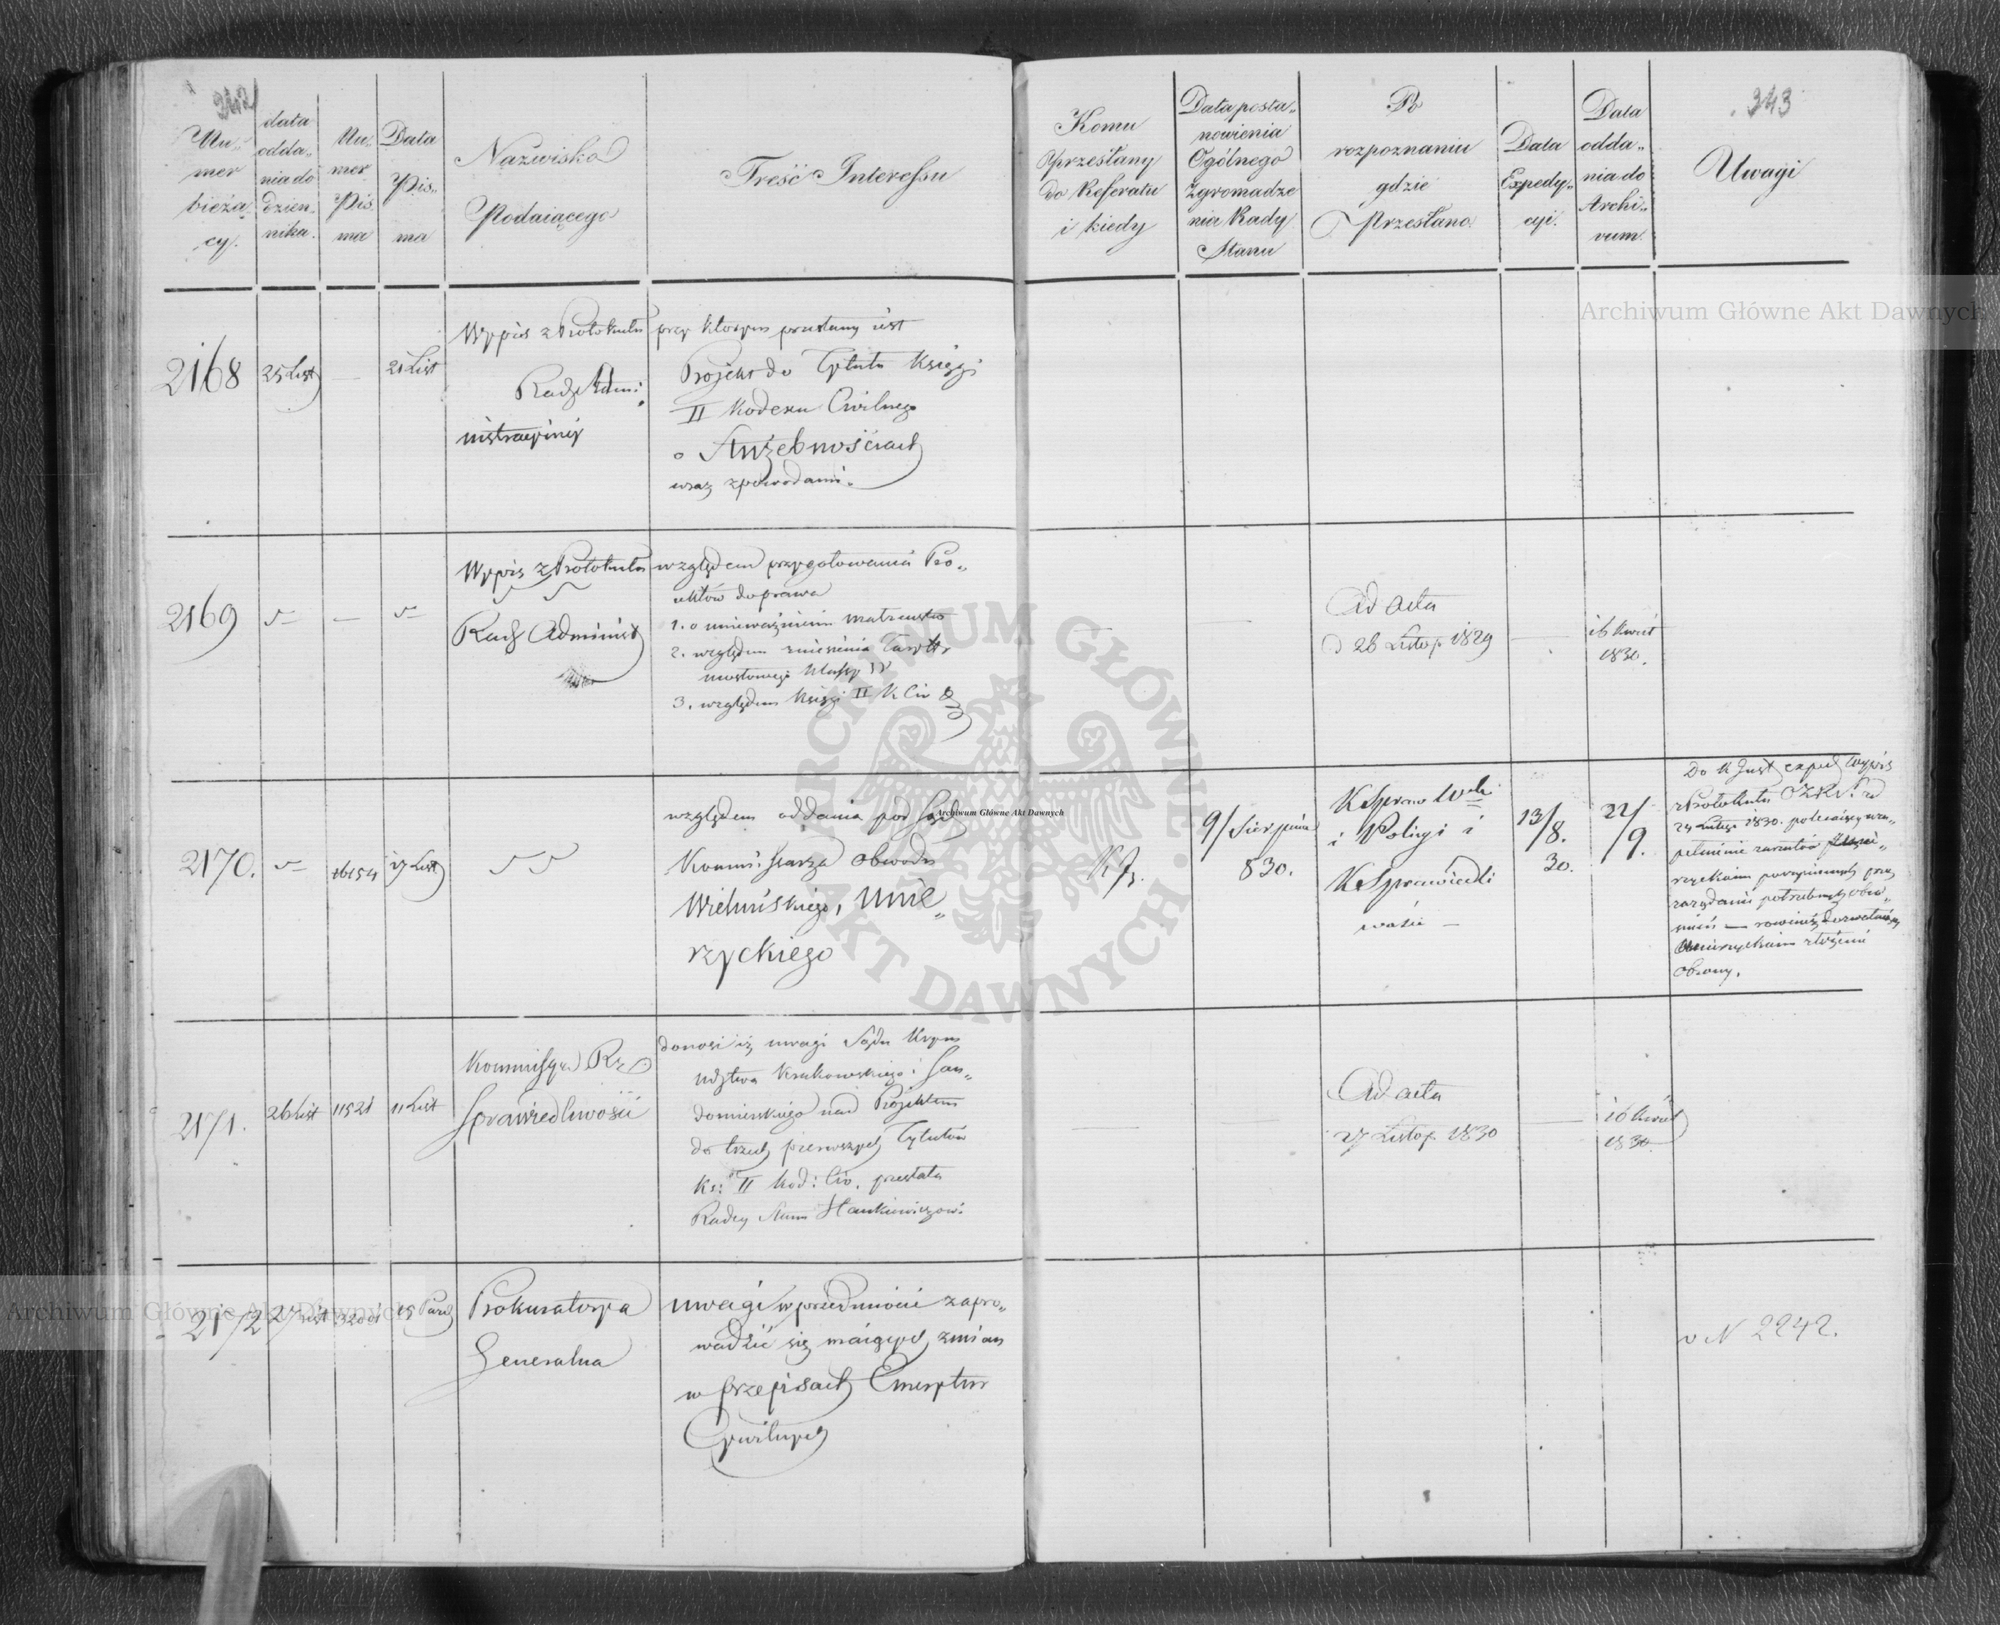 342
Nu-
mer
bieżą
cy.
data
odda-
nia do
dzien-
nika.
Nu-
mer
Pis
ma
Data
Pis-
ma
Nazwisko
Podaiącego
Treść Interessu
Komu
przesłany
do Referatu
i kiedy
Data posta-
nowienia
Ogólnego
Zgromadze
nia Rady
Stanu
Po
rozpoznaniu
gdzie
Przesłano
Data
Expedy-
cyi.
Data
odda-
nia do
Archi-
vum
343
Uwagi
2168
25 List
—
21 List
Wypis z Protokułu
Rady Admi:
nistracyjnéj
przy którym przesłany iest
Projekt do Tytułu Księgi
II Kodexu Cywilnego
o Służebnościach
wraz z powodami.
2169
—
Wypis z Protokułu
Rady Administ
względem przygotowania Pro-
iektów do prawa
1. o unieważnieniu małżeństwa
2. względem zniesienia Taryffy
mostowego Klassy IV
3. względem Księgi II K Civ
—
—
Ad acta
d 28 Listop. 1829
—
16 Kwiet
1830.
2170.
16154
17 List
względem oddania pod Sąd
Kommissarza Obwodu
Wieluńskiego, Umie-
rzyckiego
9/ Sierpnia
830.
K Spraw Wch
i Policyi i
K Sprawiedli
wości —
13/
8.
30.
22/
9.
Do K Just exped Wypis
z Protokułu OZRS. z d
obrony.
2171.
26 List
11521
11 List
Kommissya Rz
Sprawiedliwości
donosi iż uwagi Sądu Krym
Wdztwa Krakowskiego i San-
domierskiego nad Projektem
do trzech pierwszych Tytułów
Ks: II Kod: Civ. przesłała
Radcy Stanu Hankiewiczowi
—
—
Ad acta
27 Listop. 1830
—
16 Kwiet
1830
2172
27 List
15 Paźd
Prokuratorya
Generalna
uwagi w przedmiocie zapro-
wadzić się maiących zmian
w przepisach Emerytur
Cywilnych
v N 2242.
Archiwum Główne Akt Dawnych
Archiwum Główne Akt Dawnych
Archiwum Główne Akt Dawnych
ARCHIWUM GŁÓWNE · AKT DAWNYCH ·